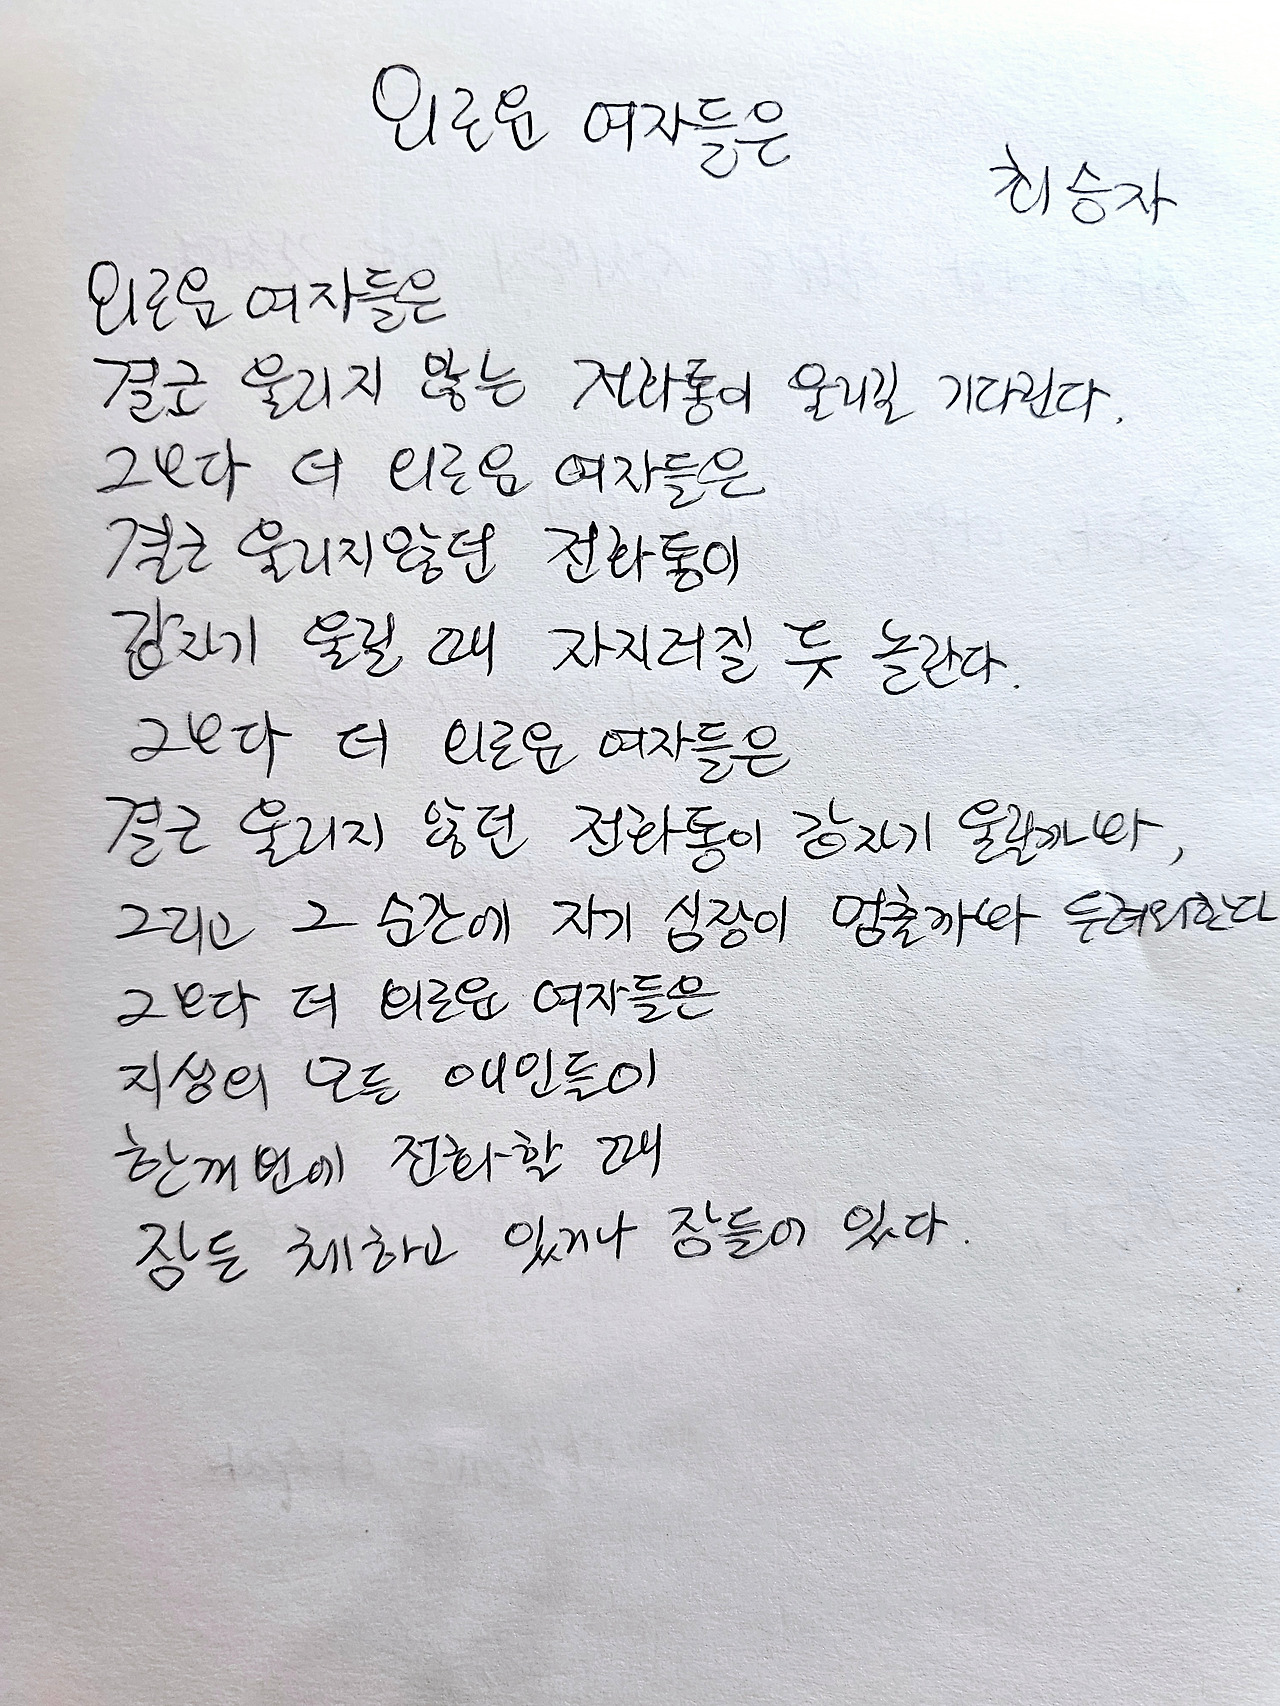 외로운 여자들은
최승자
외로운 여자들은
결코 울리지 않는 전화통이 울리길 기다린다.
그보다 더 외로운 여자들은
결코 울리지않던 전화통이
갑자기 울릴 때 자지러질 듯 놀란다.
그보다 더 외로운 여자들은
결코 울리지 않던 전화통이 갑자기 울릴까봐,
그리고 그 순간에 자기 심장이 멈출까봐 두려워한다
그보다 더 외로운 여자들은
지상의 모든 애인들이
한꺼번에 전화할 때
잠든 체하고 있거나 잠들어 있다.